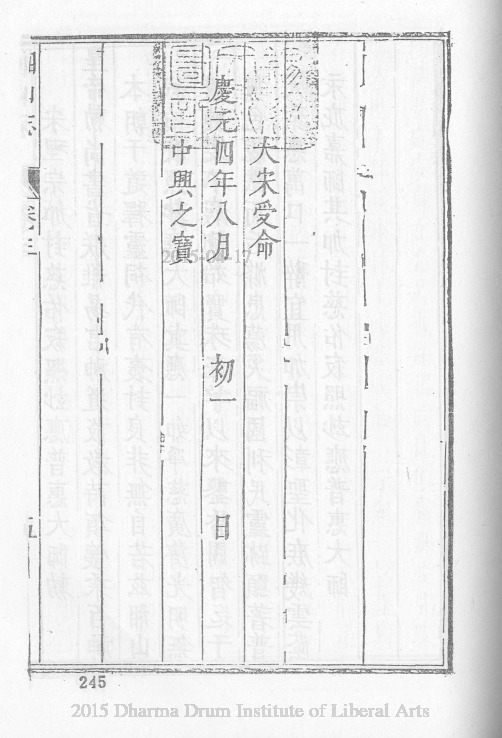 大宋受命
慶元四年八月 初一 日
中興之寶
五
245
2015 Dharma Drum Institute of Liberal Arts